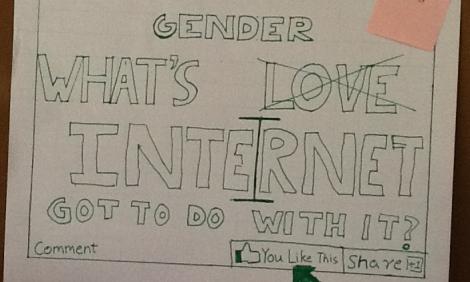 GENDER
WHAT'S LOVE
INTERNET
GOT TO DO WITH IT?
Comment You Like This Share +1